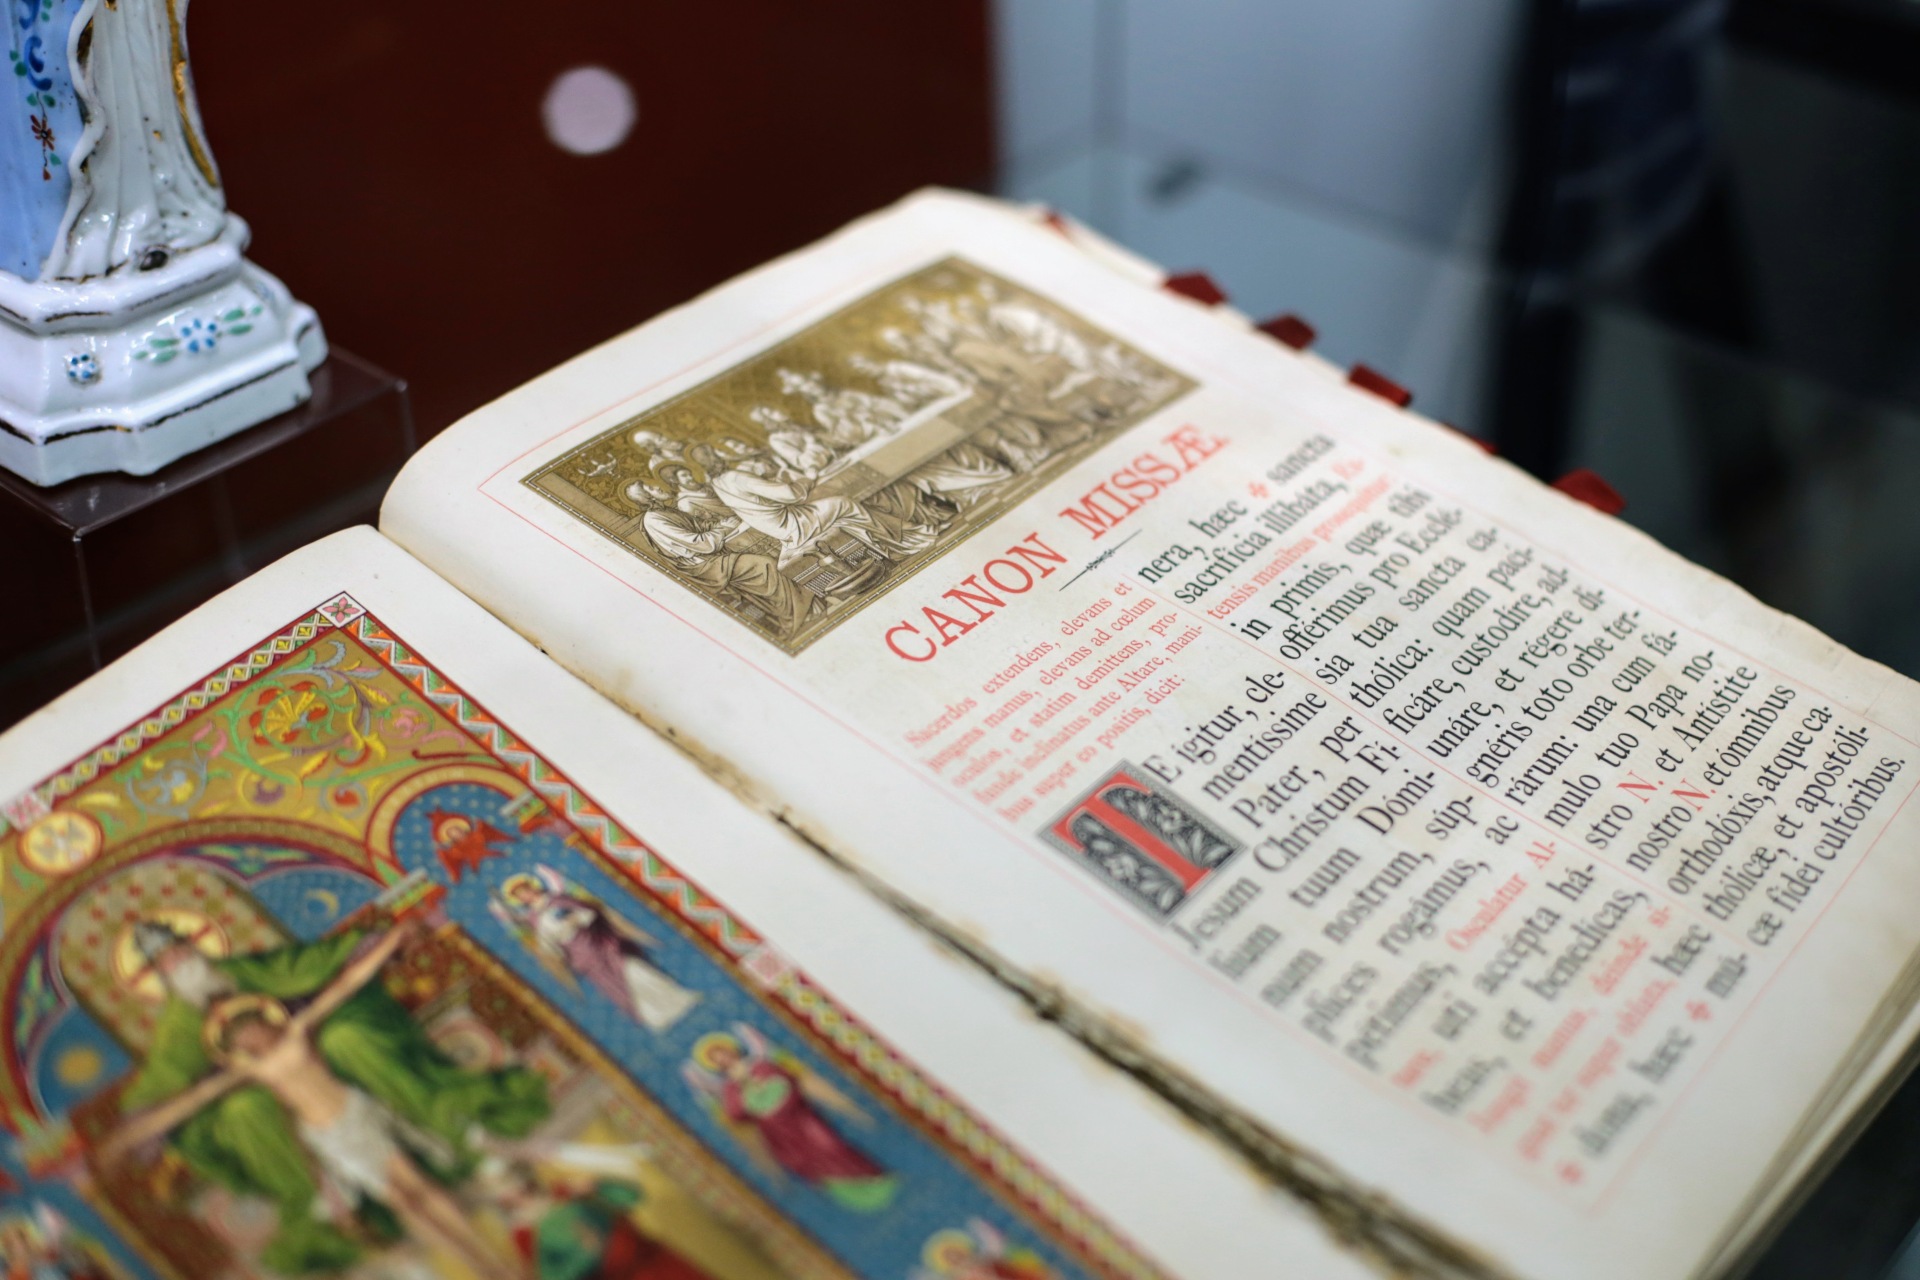 CANON MISSÆ
Sacerdos extendens, elevans et
jungens manus, elevans ad cœlum
oculos, et statim demittens, pro-
funde inclinatus ante Altare, mani-
bus super eo positis, dicit:
TE ígitur, cle-
mentíssime
Pater, per
Jesum Christum Fí-
lium tuum Dómi-
num nostrum, súp-
plices rogámus, ac
pétimus, Osculatur Al-
tare, uti accépta há-
beas, et benedícas,
Jungit manus, deinde si-
gnat ter super oblata, hæc
✠ dona, hæc ✠ mú-
nera, hæc ✠ sancta
sacrifícia illibáta, Ex-
tensis manibus prosequitur:
in primis, quæ tibi
offérimus pro Ecclé-
sia tua sancta ca-
thólica: quam paci-
ficáre, custodíre, ad-
unáre, et régere di-
gnéris toto orbe ter-
rárum: una cum fá-
mulo tuo Papa no-
stro N. et Antístite
nostro N. et ómnibus
orthodóxis, atque ca-
thólicæ, et apostóli-
cæ fídei cultóribus.